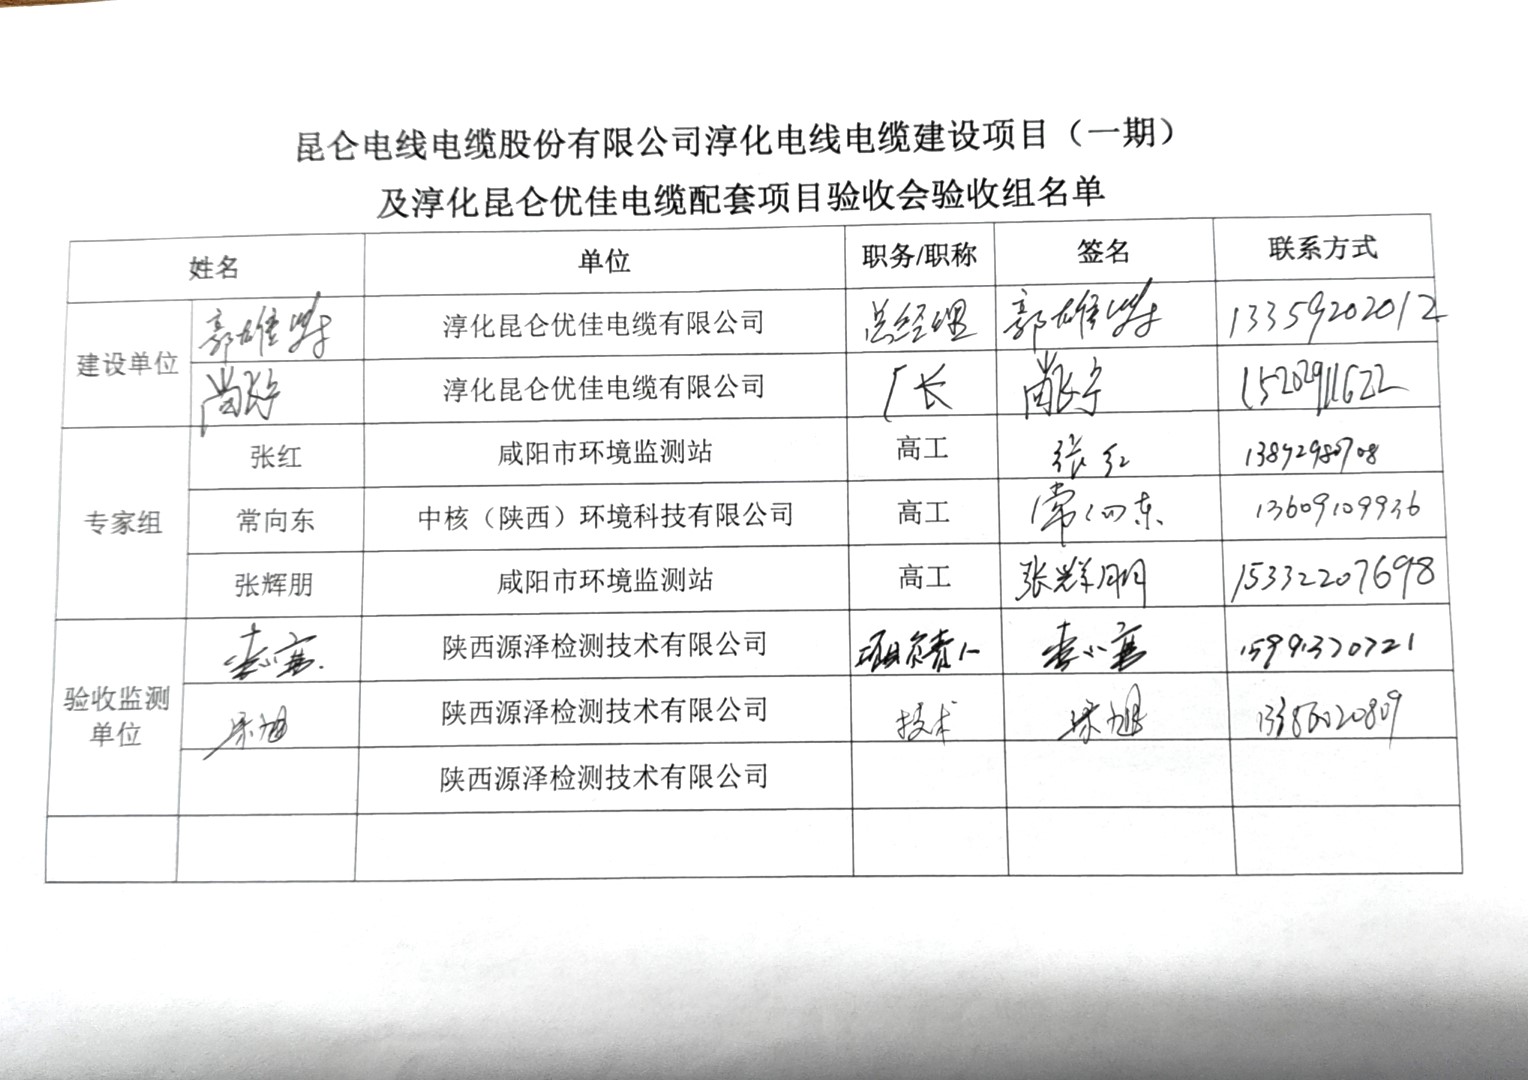 昆仑电线电缆股份有限公司淳化电线电缆建设项目（一期）
及淳化昆仑优佳电缆配套项目验收会验收组名单
姓名 单位 职务/职称 签名 联系方式
建设单位 郭雄 淳化昆仑优佳电缆有限公司 总经理 郭雄 13359202012
尚 淳化昆仑优佳电缆有限公司 厂长 尚 15202911622
专家组 张红 咸阳市环境监测站 高工 张红
常向东 中核（陕西）环境科技有限公司 高工 常向东 13609109936
张辉朋 咸阳市环境监测站 高工 张辉朋 15332207698
验收监测
单位
李小 陕西源泽检测技术有限公司 项目负责人 李小 15991320721
旭 陕西源泽检测技术有限公司 技术 旭
陕西源泽检测技术有限公司